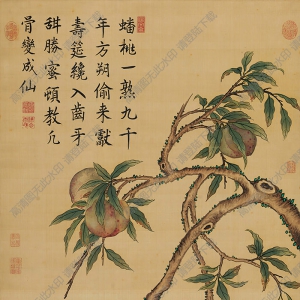 蟠桃一熟九千
年方朔偷来獻
壽筵纔入齒牙
甜勝蜜頓教凡
骨變成仙